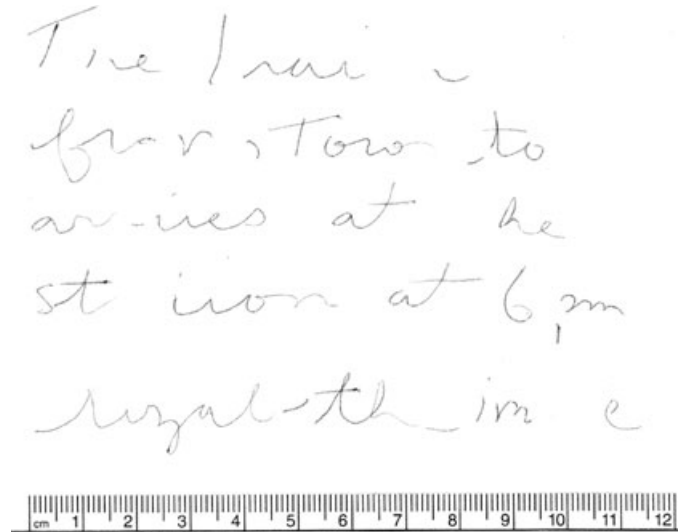 The Train
from Toronto
arrives at the
station at 6 pm
cm 1 2 3 4 5 6 7 8 9 10 11 12